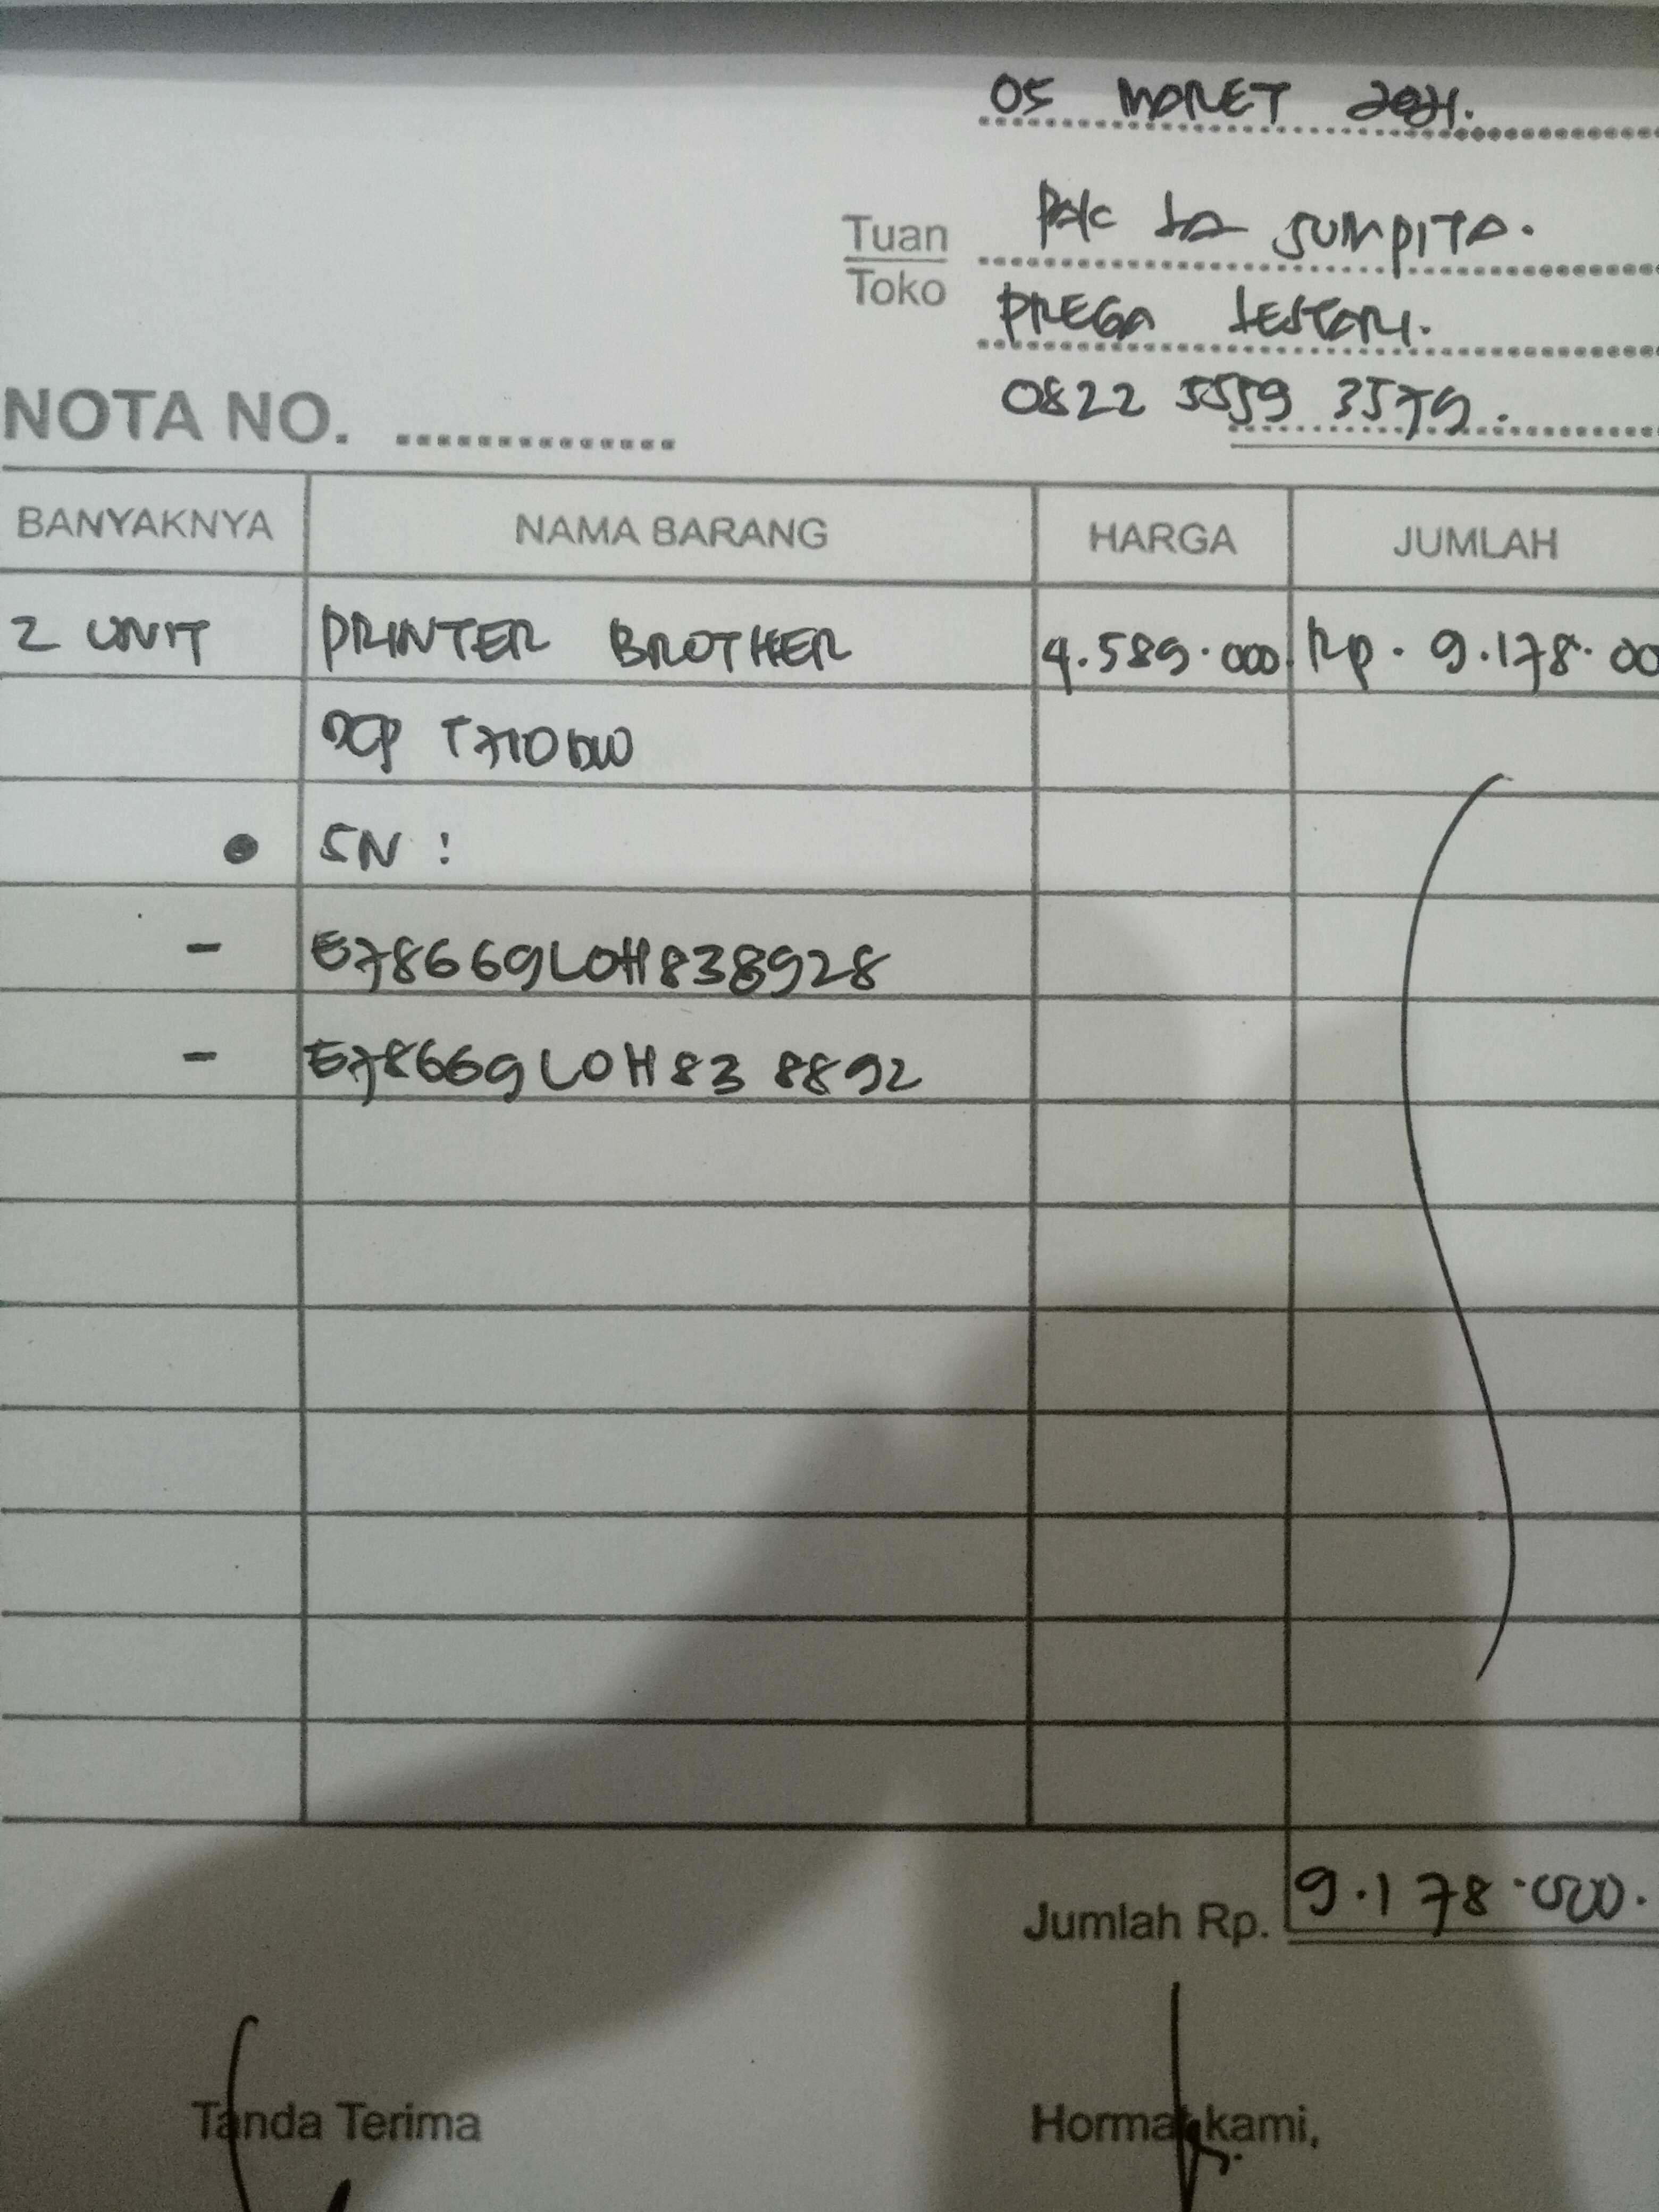 05 MARET 2021.
Tuan Pak La SUMPITA.
Toko PREGA LESTARI.
0822 5559 3579.
NOTA NO. ...............
BANYAKNYA NAMA BARANG HARGA JUMLAH
2 UNIT PRINTER BROTHER 4.589.000. Rp. 9.178.00
DCP T710DW
• SN :
- E78669L0H838928
- E78669L0H838892
Jumlah Rp. 9.178.000.
Tanda Terima Hormat kami,